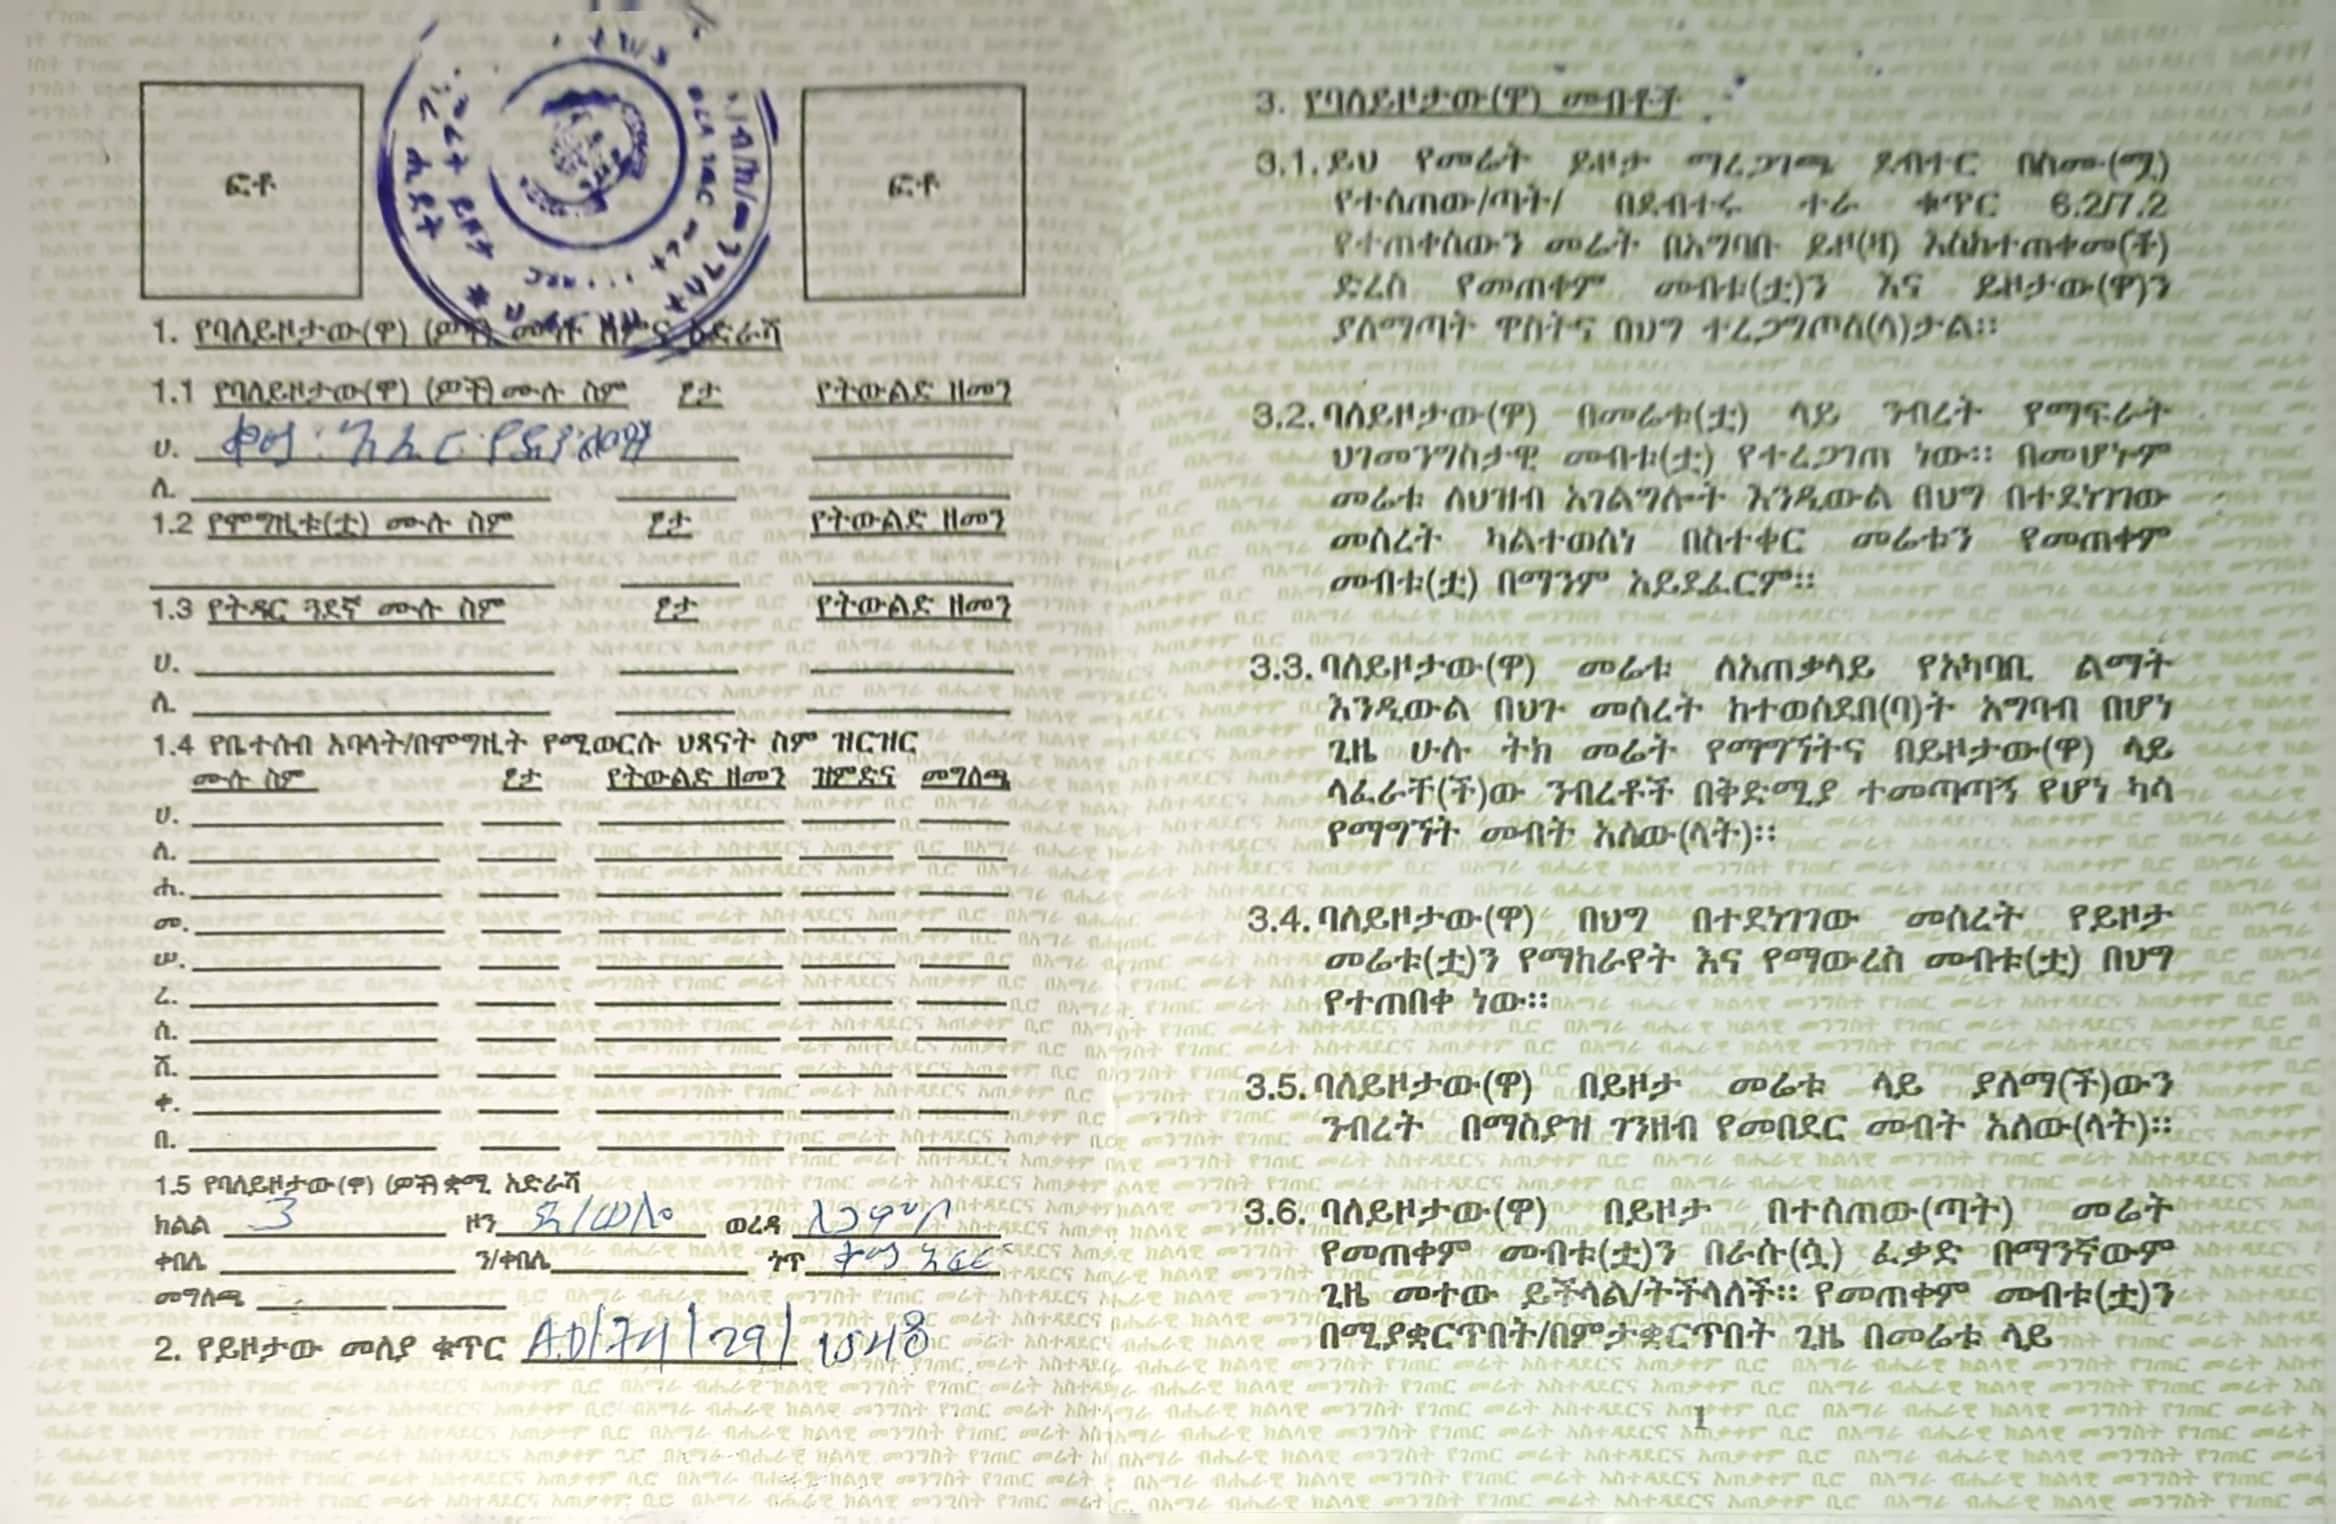 ፎቶ
ፎቶ
1. የባለይዞታው(ዋ) (ዎች) ሙሉ ስምና አድራሻ
1.1 የባለይዞታው(ዋ) (ዎች) ሙሉ ስም ፆታ የትውልድ ዘመን
ሀ.
ለ.
1.2 የሞግዚቱ(ቷ) ሙሉ ስም ፆታ የትውልድ ዘመን
1.3 የትዳር ጓደኛ ሙሉ ስም ፆታ የትውልድ ዘመን
ሀ.
ለ.
1.4 የቤተሰብ አባላት/በሞግዚት የሚወርሱ ህጻናት ስም ዝርዝር
ሙሉ ስም ፆታ የትውልድ ዘመን ዝምድና መግለጫ
ሀ.
ለ.
ሐ.
መ.
ሠ.
ረ.
ሰ.
ሸ.
ቀ.
በ.
1.5 የባለይዞታው(ዋ) (ዎች) ቋሚ አድራሻ
ክልል 3 ዞን ደ/ወሎ ወረዳ
ቀበሌ ን/ቀበሌ ጎጥ
መግለጫ
2. የይዞታው መለያ ቁጥር
3. የባለይዞታው(ዋ) መብቶች
3.1. ይህ የመሬት ይዞታ ማረጋገጫ ደብተር በስሙ(ሟ)
የተሰጠው/ጣት/ በደብተሩ ተራ ቁጥር 6.2/7.2
የተጠቀሰውን መሬት በአግባቡ ይዞ(ዛ) እስከተጠቀመ(ች)
ድረስ የመጠቀም መብቱ(ቷ)ን እና ይዞታው(ዋ)ን
ያለማጣት ዋስትና በህግ ተረጋግጦለ(ላ)ታል።
3.2. ባለይዞታው(ዋ) በመሬቱ(ቷ) ላይ ንብረት የማፍራት
ህገመንግስታዊ መብቱ(ቷ) የተረጋገጠ ነው። በመሆኑም
መሬቱ ለህዝብ አገልግሎት እንዲውል በህግ በተደነገገው
መሰረት ካልተወሰነ በስተቀር መሬቱን የመጠቀም
መብቱ(ቷ) በማንም አይደፈርም።
3.3. ባለይዞታው(ዋ) መሬቱ ለአጠቃላይ የአካባቢ ልማት
እንዲውል በህጉ መሰረት ከተወሰደበ(ባ)ት አግባብ በሆነ
ጊዜ ሁሉ ትክ መሬት የማግኘትና በይዞታው(ዋ) ላይ
ላፈራቸ(ች)ው ንብረቶች በቅድሚያ ተመጣጣኝ የሆነ ካሳ
የማግኘት መብት አለው(ላት)።
3.4. ባለይዞታው(ዋ) በህግ በተደነገገው መሰረት የይዞታ
መሬቱ(ቷ)ን የማከራየት እና የማውረስ መብቱ(ቷ) በህግ
የተጠበቀ ነው።
3.5. ባለይዞታው(ዋ) በይዞታ መሬቱ ላይ ያለማ(ች)ውን
ንብረት በማስያዝ ገንዘብ የመበደር መብት አለው(ላት)።
3.6. ባለይዞታው(ዋ) በይዞታ በተሰጠው(ጣት) መሬት
የመጠቀም መብቱ(ቷ)ን በራሱ(ሷ) ፈቃድ በማንኛውም
ጊዜ መተው ይችላል/ትችላለች። የመጠቀም መብቱ(ቷ)ን
በሚያቋርጥበት/በምታቋርጥበት ጊዜ በመሬቱ ላይ
1